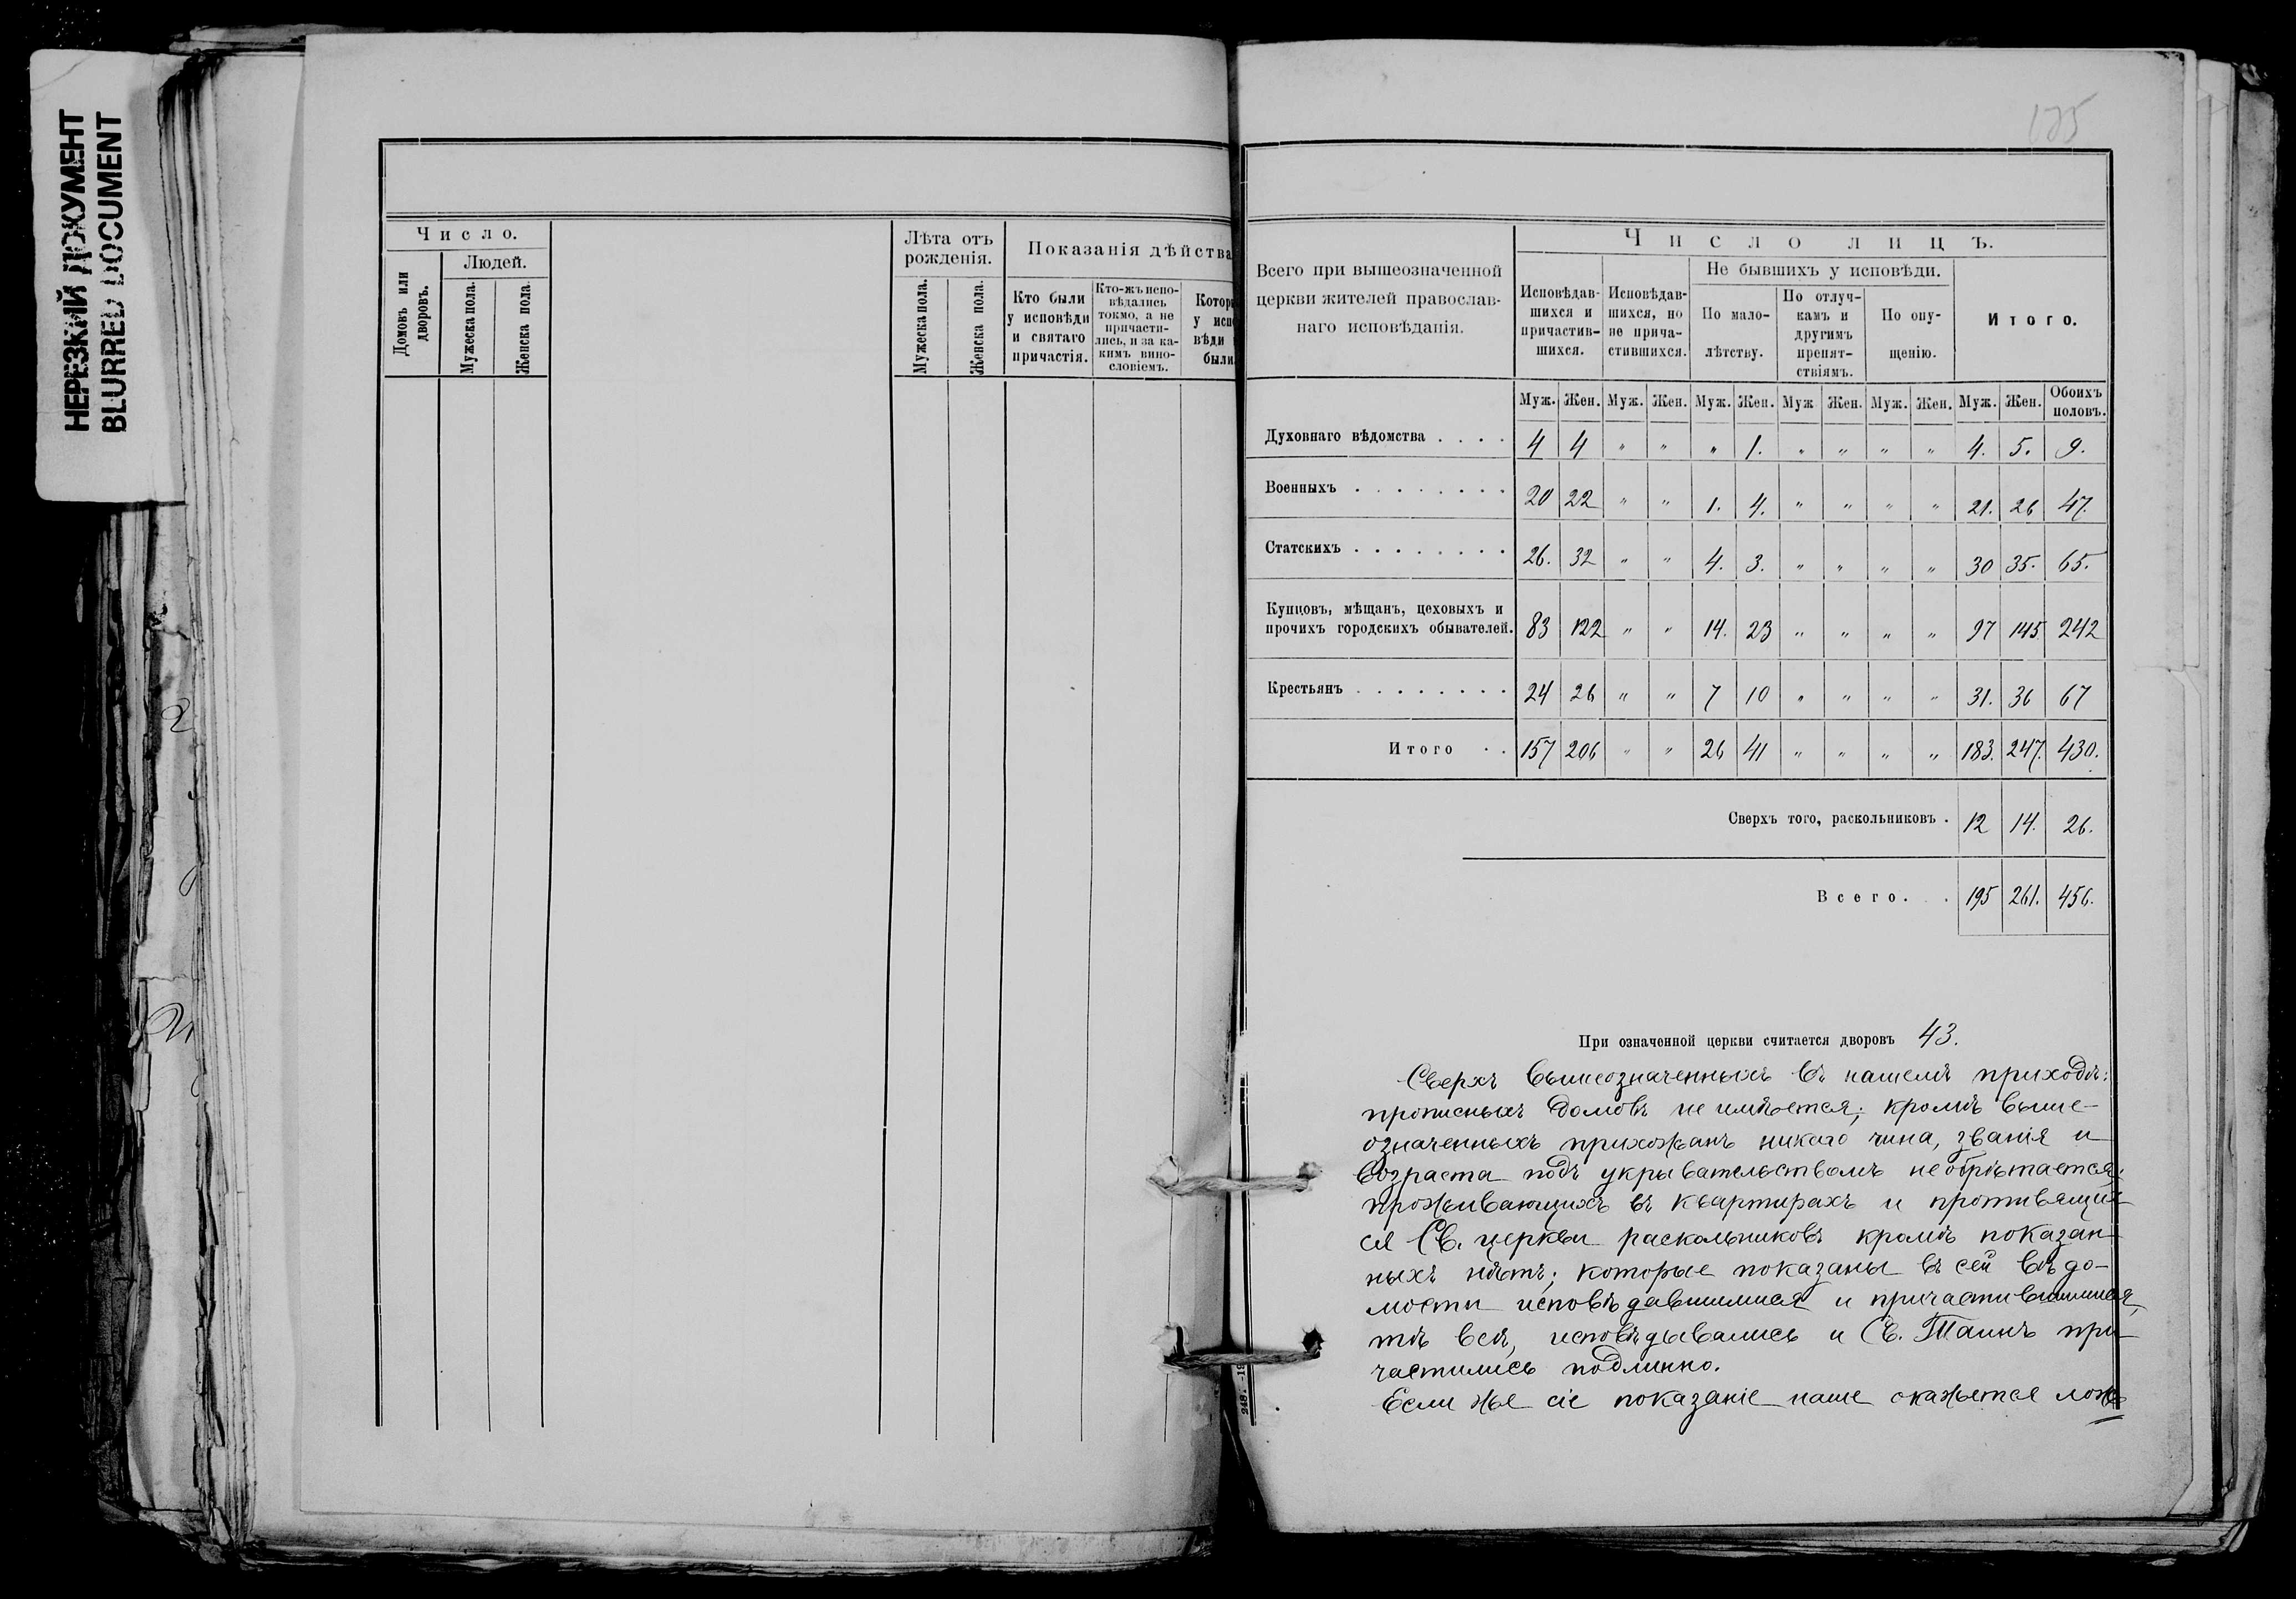 НЕРЕЗКИЙ ДОКУМЕНТ
BLURRED DOCUMENT
Число.
Домовъ или дворовъ.
Людей.
Мужеска пола.
Женска пола.
Лѣта отъ
рожденія.
Мужеска пола.
Женска пола.
Показанія дѣйства
Кто были
у исповѣди
и святаго
причастія.
Кто-жъ испо-
вѣдались
токмо, а не
причасти-
лись, и за ка-
кимъ вино-
словіемъ.
Котор
у исп
вѣди
были
Всего при вышеозначенной
церкви жителей православ-
наго исповѣданія.
Число лицъ.
Исповѣдав-
шихся и
причастив-
шихся.
Исповѣдав-
шихся, но
не прича-
стившихся.
Не бывшихъ у исповѣди.
По мало-
лѣтству.
По отлуч-
камъ и
другимъ
препят-
ствіямъ.
По опу-
щенію.
Итого.
Муж. Жен. Муж. Жен. Муж. Жен. Муж Жен. Муж. Жен. Муж. Жен. Обоихъ половъ.
Духовнаго вѣдомства . . . . 4 4 " " " 1. " " " " 4. 5. 9.
Военныхъ . . . . . . . . 20 22 " " 1. 4. " " " " 21. 26 47.
Статскихъ . . . . . . . . 26. 32 " " 4. 3. " " " " 30 35. 65.
Купцовъ, мѣщанъ, цеховыхъ и
прочихъ городскихъ обывателей. 83 122 " " 14. 23 " " " " 97 145 242
Крестьянъ . . . . . . . . 24 26 " " 7 10 " " " " 31. 36 67
Итого . . 157 206 " " 26 41 " " " " 183. 247. 430.
Сверхъ того, раскольниковъ . 12 14. 26.
Всего. . 195 261. 456.
При означенной церкви считается дворовъ 43.
Сверхъ вышеозначенныхъ въ нашемъ приходѣ:
прописныхъ домовъ не имѣется; кромѣ выше-
означенныхъ прихожанъ никого чина, званія и
возраста подъ укрывательствомъ не обрѣтается;
проживающихъ въ квартирахъ и противящих
ся Св. церкви раскольниковъ кромѣ показан-
ныхъ нѣтъ; которые показаны въ сей вѣдо-
мости исповѣдавшимися и причастившимися,
тѣ всѣ, исповѣдывались и Св. Таинъ при-
частились подлинно.
Если же сіе показаніе наше окажется лож